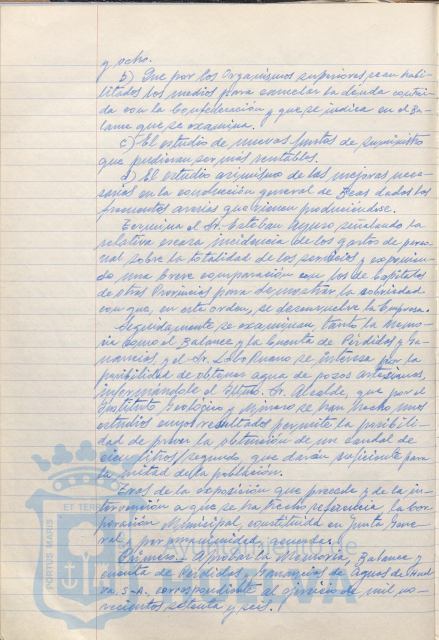 y ocho.
b) Que por los Organismos superiores sean habi-
litados los medios para cancelar la deuda contraí-
da con la Confederación y que se indica en el Ba-
lance que se examina.
c) El estudio de nuevas fuentes de suministro
que pudieran ser más rentables.
d) El estudio asimismo de las mejoras nece-
sarias en la conducción general de Beas dadas las
frecuentes averías que vienen produciéndose.
Termina el Sr. Esteban señalando la
relativa escasa incidencia de los gastos de perso-
nal sobre la totalidad de los servicios y exponien-
do una breve comparación con los de Capitales
de otras Provincias para demostrar la sobriedad
con que, en este orden, se desenvuelve la Empresa.
Seguidamente se examinan, tanto la Memo-
ria como el Balance y la Cuenta de Pérdidas y Ga-
nancias y el Sr. se interesa por la
posibilidad de obtener agua de pozos artesianos,
informándole el Iltmo. Sr. Alcalde, que por el
Instituto Geológico y Minero se han hecho unos
estudios cuyo resultado permite la posibili-
dad de prever la obtención de un caudal de
cien litros/segundo que darían suficiente para
la mitad de la población.
de la exposición que precede y de la in-
tervención a que se ha hecho referencia, la Cor-
poración Municipal, constituida en Junta Gene-
ral, por unanimidad, acuerda:
Primero.- Aprobar la Memoria, Balance y
cuenta de Pérdidas y Ganancias de Aguas de Huel-
va, S.A. correspondiente al ejercicio de mil no-
vecientos setenta y seis.
PORTUS MARIS
ET TERR